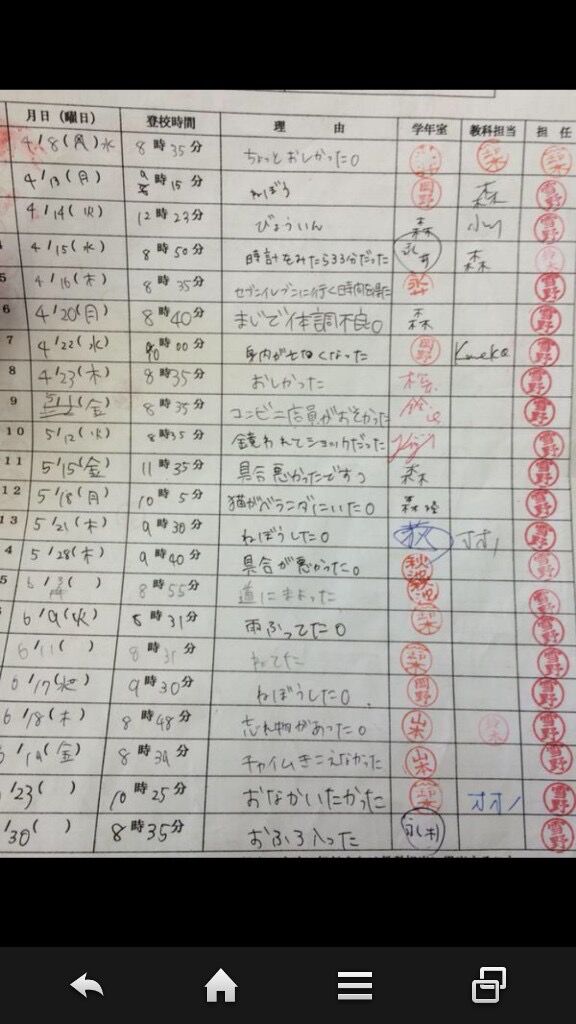 月日（曜日） 登校時間 理 由 学年室 教科担当 担任
4/8(月)水 8時35分 ちょっとおしかった。
4/13(月) 9時15分 ねぼう 岡野 森 雪野
4/14(火) 12時23分 びょういん 森 小川 雪野
4/15(水) 8時50分 時計をみたら33分だった 永井 森
5 4/16(木) 8時35分 セブンイレブンに行く時間を得た 永井 雪野
6 4/20(月) 8時40分 まじで体調不良。 森 雪野
7 4/22(水) 時00分 身内が亡くなった 岡野 Kaneko 雪野
8 4/23(木) 8時35分 おしかった 雪野
9 (金) 8時35分 コンビニ店員がおそかった 雪野
10 5/12(火) 8時35分 鏡われてショックだった 雪野
11 5/15(金) 11時35分 具合悪かったですっ 森 雪野
12 5/18(月) 10時5分 猫がベランダにいた。 森 雪野
13 5/21(木) 9時30分 ねぼうした。 荻 オオノ 雪野
4 5/28(木) 9時40分 具合が悪かった。 雪野
5 6/ ( ) 8時55分 道にまよった 雪野
6/9(火) 8時31分 雨ふってた。 雪野
6/11( ) 8時31分 ねてた 雪野
6/17(水) 9時30分 ねぼうした。 岡野 雪野
6/18(木) 8時48分 忘れ物があった。 山本 鈴木 雪野
/19(金) 8時39分 チャイムきこえなかった 山本 雪野
/23( ) 10時25分 おなかいたかった オオノ 雪野
/30( ) 8時35分 おふろ入った 雪野